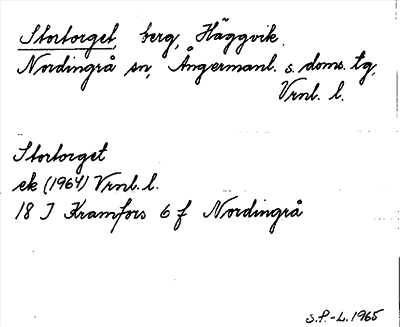 Stortorget, berg, Häggvik,
Nordingrå sn, Ångermanl. s. doms. tg,
Vrnl. l.
Stortorget
ek (1964) Vrnl. l.
18 J Kramfors 6 f Nordingrå
S.P.-L. 1965